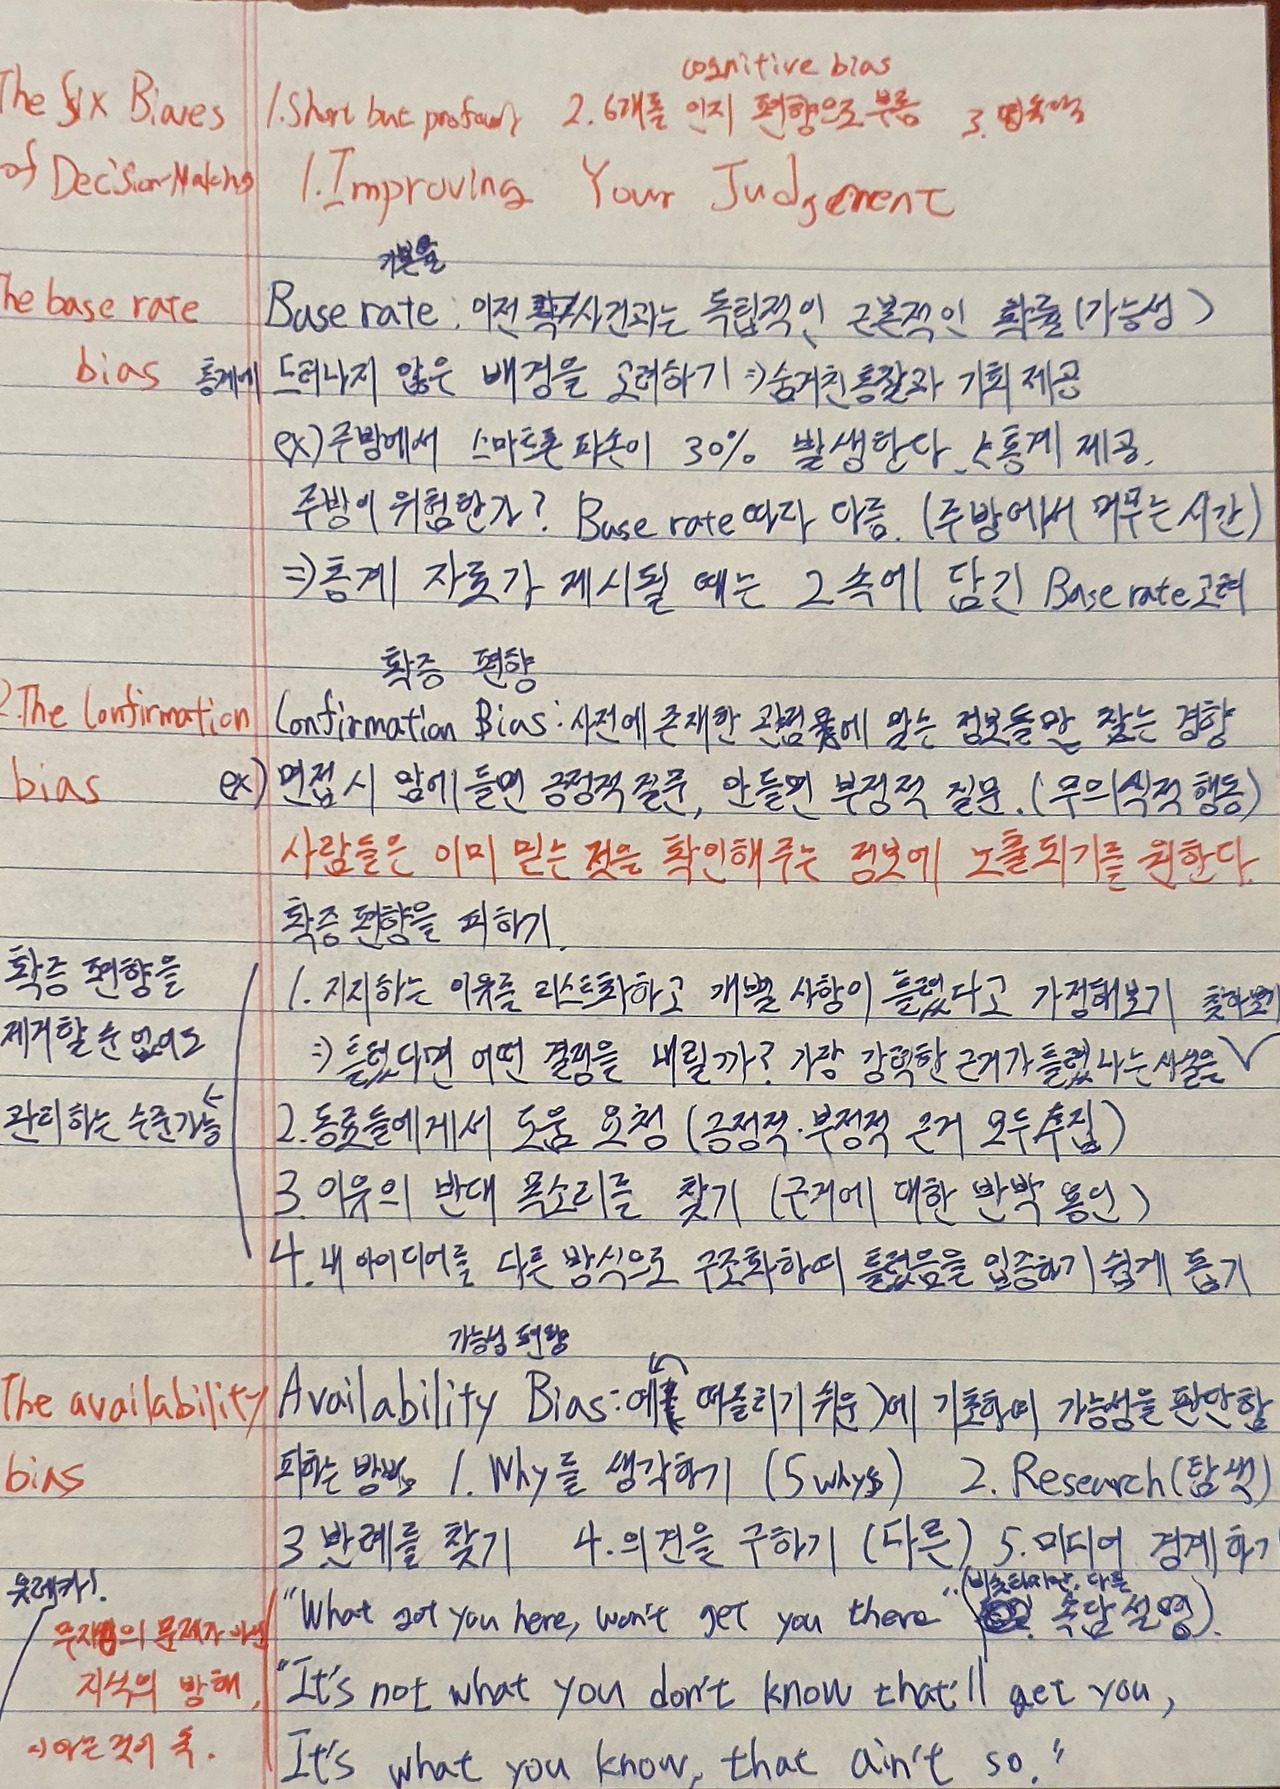 cognitive bias
The Six Biases 1. Short but profound 2. 6개를 인지 편향으로 부름 3.
of Decision-Making 1. Improving Your Judgement
기본율
The base rate Base rate : 이전 사건과는 독립적인 근본적인 확률 (가능성)
bias 통계에 드러나지 않은 배경을 고려하기 => 숨겨진 통찰과 기회 제공
ex) 주방에서 스마트폰 파손이 30% 발생한다. 통계 제공.
주방이 위험한가? Base rate 따라 다름. (주방에서 머무는 시간)
=> 통계 자료가 제시될 때는 그 속에 담긴 Base rate 고려
확증 편향
2. The Confirmation Confirmation Bias : 사전에 존재한 관점에 맞는 정보들만 찾는 경향
bias ex) 면접 시 맘에 들면 긍정적 질문, 안들면 부정적 질문. (무의식적 행동)
사람들은 이미 믿는 것을 확인해 주는 정보에 노출되기를 원한다.
확증 편향을 피하기.
확증 편향을 1. 지지하는 이유를 리스트화하고 개별 사항이 틀렸다고 가정해보기 찾아보기
제거할 순 없어도 => 틀렸다면 어떤 결정을 내릴까? 가장 강력한 근거가 틀렸다는 사실은
관리하는 수준 가능 2. 동료들에게서 도움 요청 (긍정적·부정적 근거 모두 수집)
3. 이유의 반대 목소리를 찾기 (근거에 대한 반박 용인)
4. 내 아이디어를 다른 방식으로 구조화하여 틀렸음을 입증하기 쉽게 돕기
가능성 편향
The availability Availability Bias : 예 (떠올리기 쉬운)에 기초하여 가능성을 판단함
bias 피하는 방법 1. Why를 생각하기 (5 whys) 2. Research (탐색)
3 반례를 찾기 4. 의견을 구하기 (다른) 5. 미디어 경계하기
유레카! (비슷하지만, 다른
"What got you here, won't get you there" 속담 설명).
무지의 문제가 아닌
지식의 방해, "It's not what you don't know that'll get you,
=> 아는 것이 독. It's what you know, that ain't so."